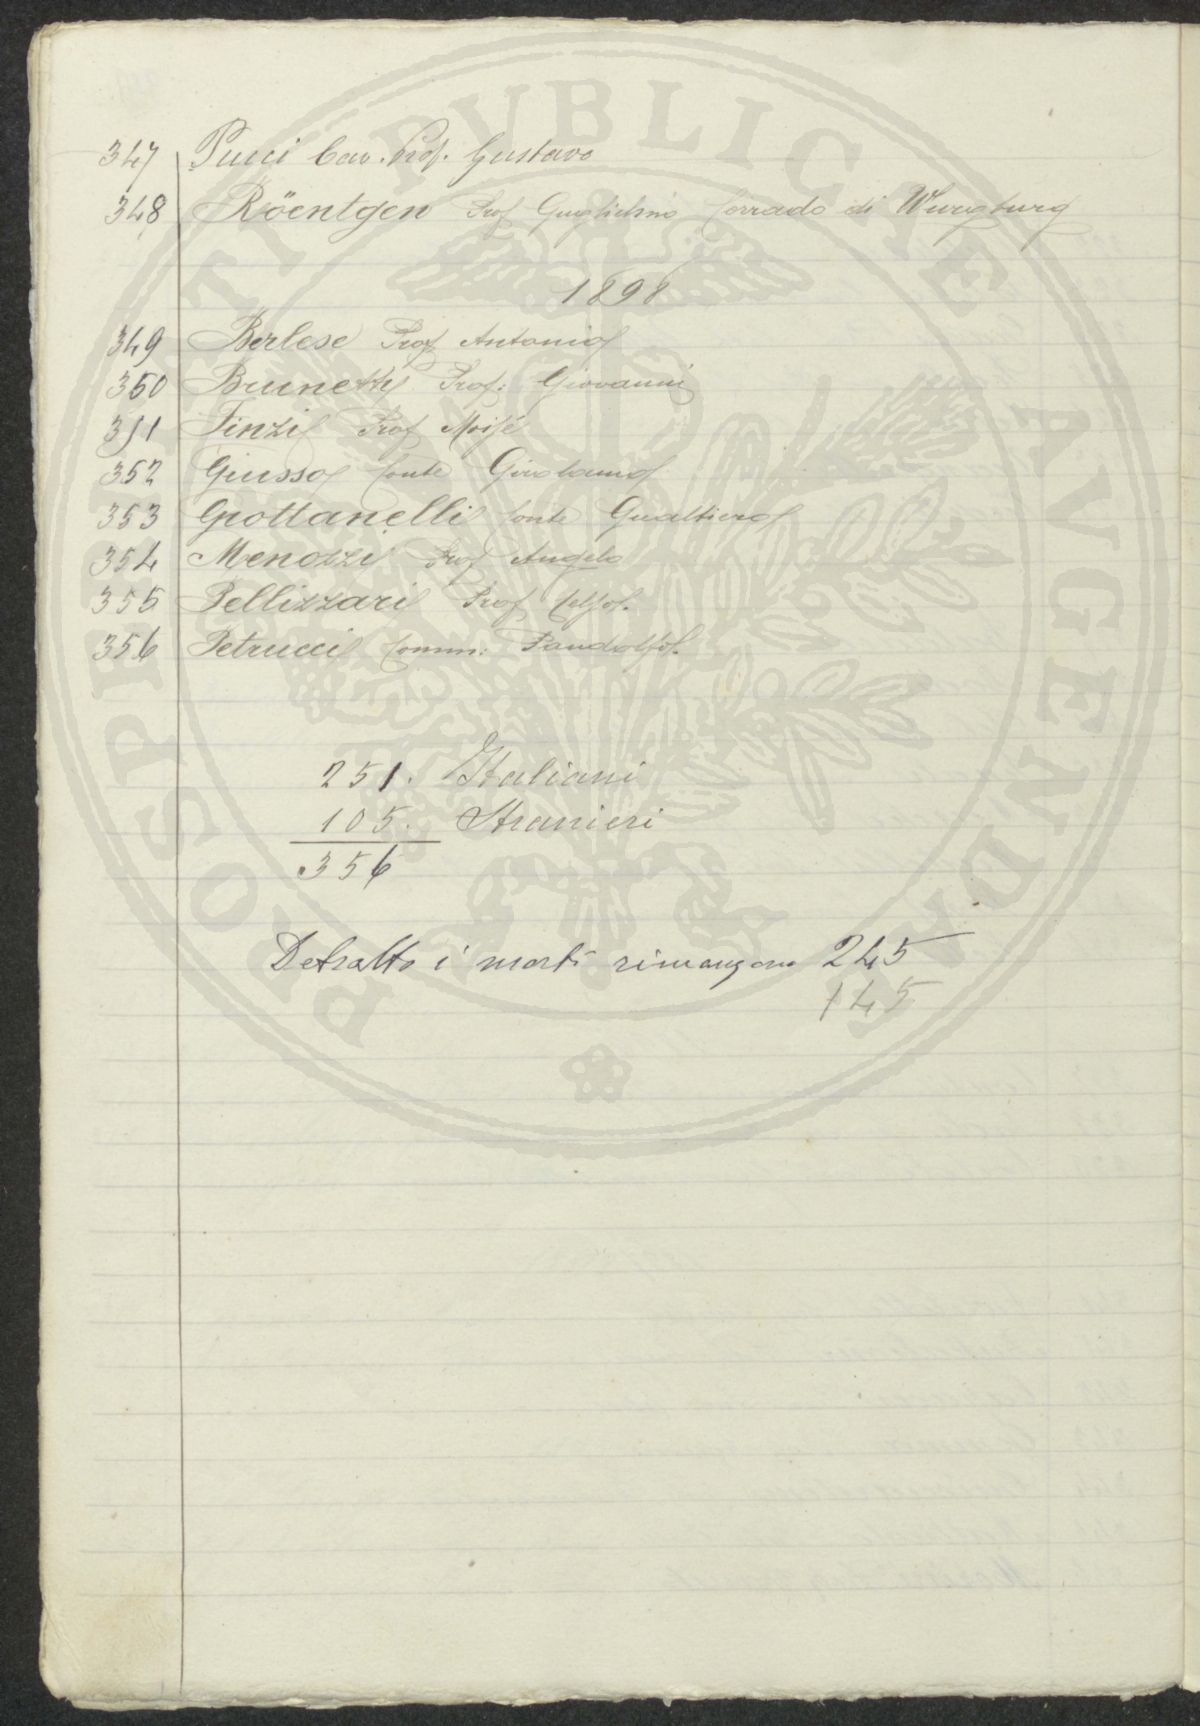 347 Pucci Cav. Prof. Gustavo
348 Röentgen Prof Guglielmo Corrado di Wurzburg
1898
349 Berlese Prof Antonio
350 Brunetti Prof. Giovanni
351 Finzi Prof Moisé
352 Giusso Conte Girolamo
353 Grottanelli Conte Gualtiero
354 Menozzi Prof Angelo
355 Pellizzari Prof Celso.
356 Petrucci Comm: Pandolfo.
251. Italiani
105. Stranieri
356
Detratto i morti rimangono 245
145
PROSPERITATI PVBLICAE AVGENDAE